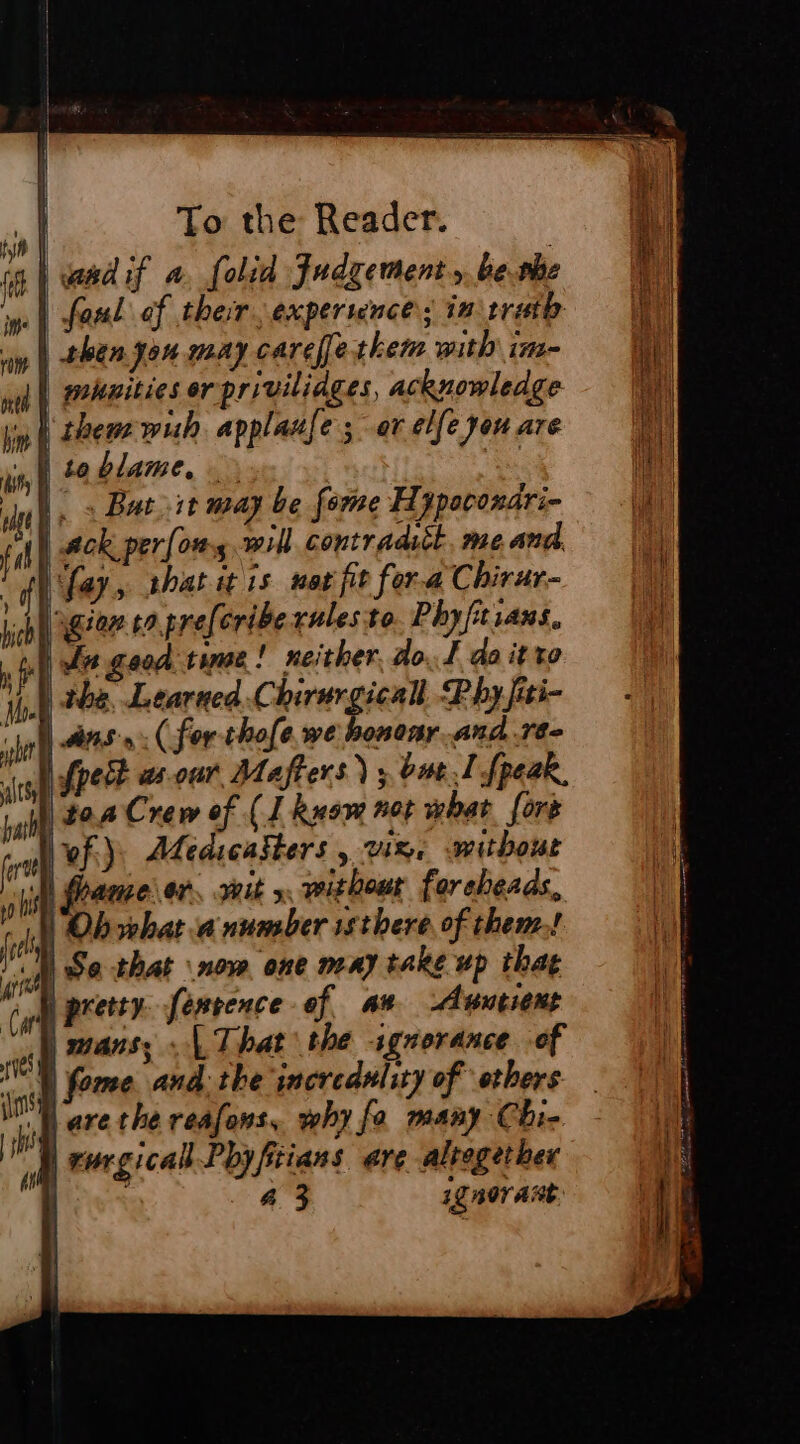 To the Reader.
and if a ſolid Judgement, be the
ſoul of their experience; in truth
then you may careſſe them with im-
munities or privilidges, acknowledge
them with applauſe; or elſe you are
to blame.
But it may be ſome Hypocondri-
ack perſons, will contradict me and
ſay, that it is not fit for a Chirur-
gion to preſcribe rules to Phyſitians,
In good time! neither do I do it to
the Learned Chirurgicall Phyſiti-
ans, (for thoſe we honour and re-
ſpect as our Maſters), but I ſpeak
to a Crew of (I know not what ſort
of) Medicaſters, viz. without
ſhame or wit, without foreheads,
Oh what a number is there of them!
So that now one may take up that
pretty ſentence of an Auntient
mans, [That the ignorance of
ſome and the incredulity of others
are the reaſons, why ſo many Chi-
rurgicall Phyſitians are altogether
a 3 ignorant